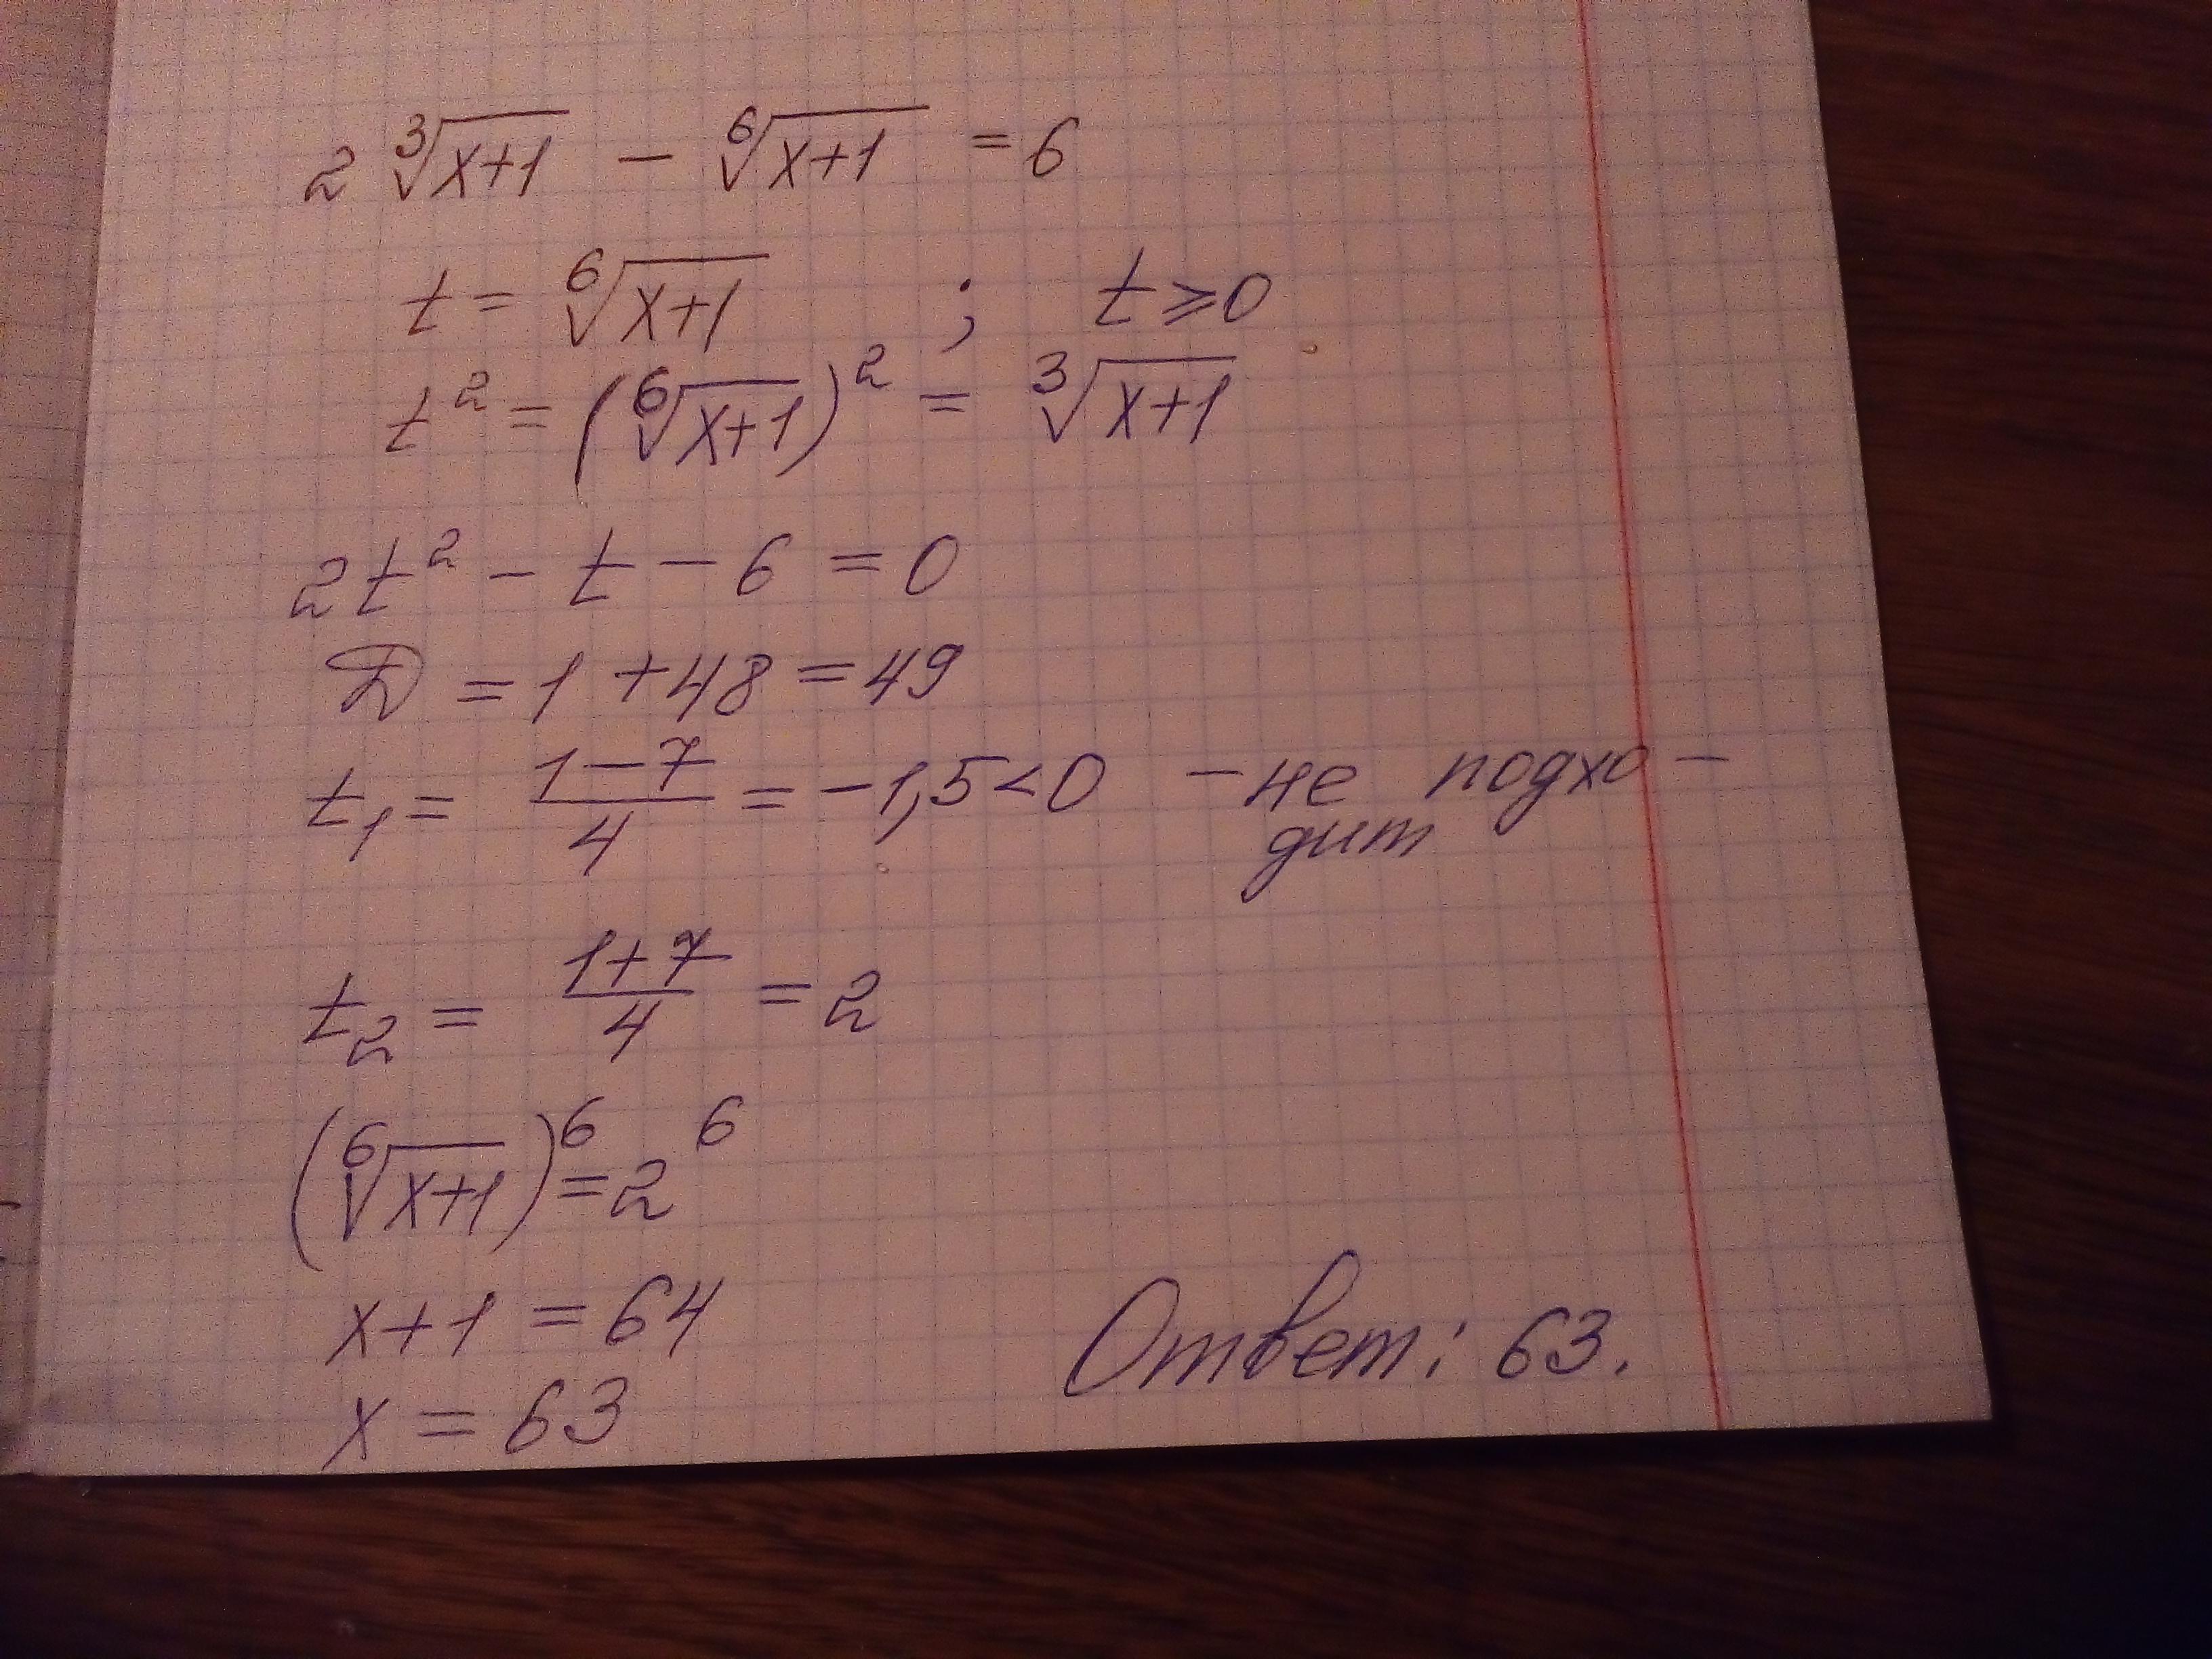 2 ∛x+1 − ⁶√x+1 = 6
t = ⁶√x+1 ; t ⩾ 0
t² = (⁶√x+1)² = ∛x+1
2t² − t − 6 = 0
D = 1 + 48 = 49
t₁ = (1−7)/4 = −1,5 < 0 − не подхо-
дит
t₂ = (1+7)/4 = 2
(⁶√x+1)⁶ = 2⁶
x+1 = 64
x = 63
Ответ: 63.